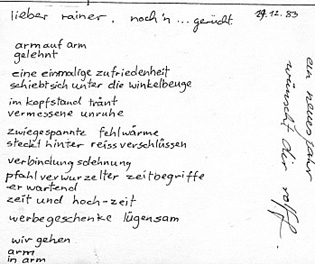 lieber rainer, noch'n ... gerücht.
27.12.83
armauf arm
gelehnt
eine einmalige zufriedenheit
schiebt sich unter die winkelbeuge
im kopfstand tränt
vermessene unruhe
zwiegespannte fehlwärme
steckt hinter reissverschlüssen
verbindungsdehnung
pfahlverwurzelter zeitbegriffe
erwartend
zeit und hoch-zeit
werbegeschenke lügensam
wir gehen
arm
in arm
ein neues jahr
wünscht dir rolf.